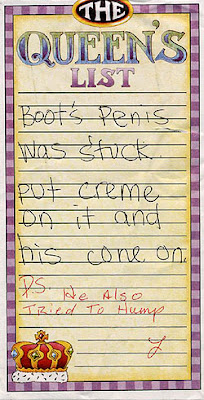 THE
QUEEN'S
LIST
Boot's Penis
was stuck.
put creme
on it and
his cone on.
P.S. He Also
Tried To Hump